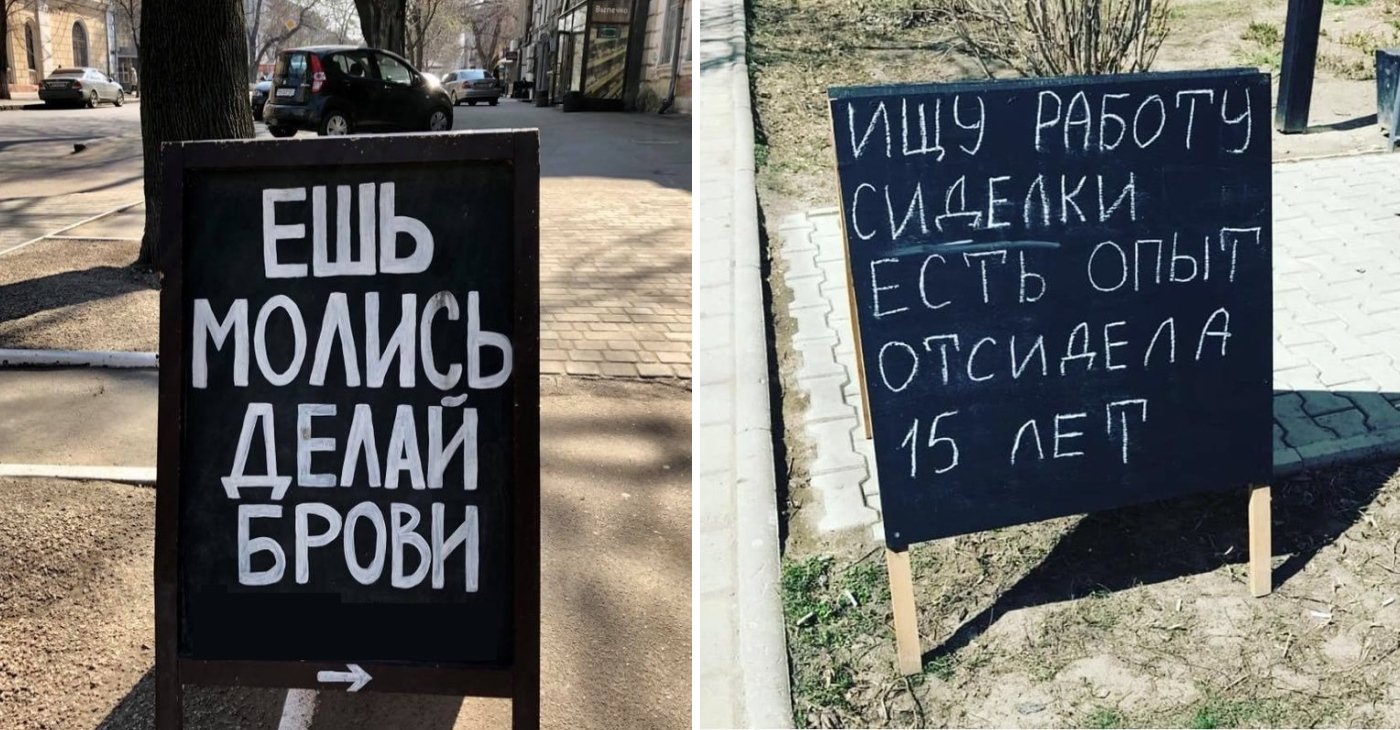 Выпечка
ЕШЬ
МОЛИСЬ
ДЕЛАЙ
БРОВИ
ИЩУ РАБОТУ
СИДЕЛКИ
ЕСТЬ ОПЫТ
ОТСИДЕЛА
15 ЛЕТ